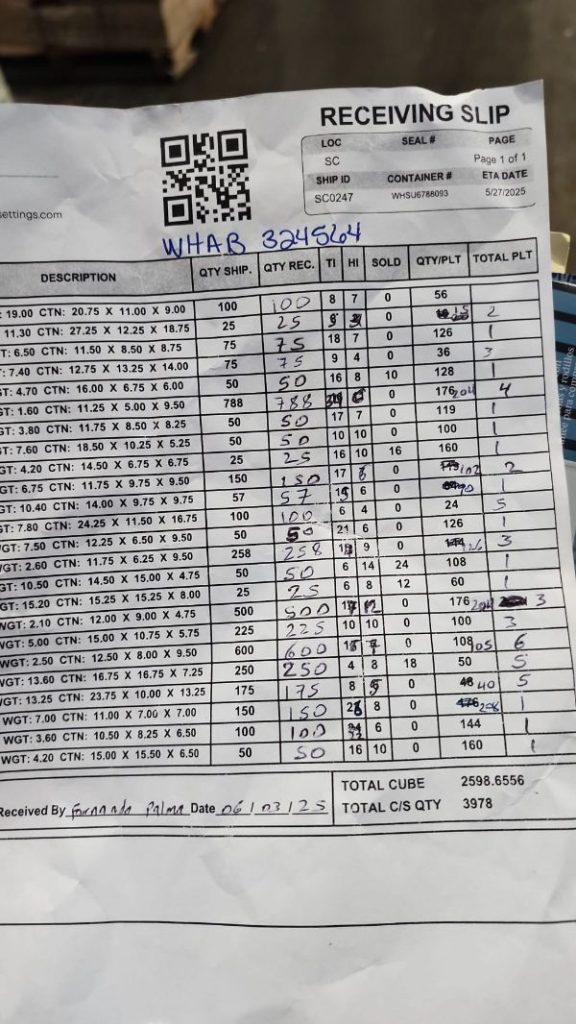 RECEIVING SLIP
LOC SEAL # PAGE
SC Page 1 of 1
SHIP ID CONTAINER # ETA DATE
SC0247 WHSU6788093 5/27/2025
settings.com
WHAB 324564
DESCRIPTION QTY SHIP. QTY REC. TI HI SOLD QTY/PLT TOTAL PLT
: 19.00 CTN: 20.75 X 11.00 X 9.00 100 100 8 7 0 56
11.30 CTN: 27.25 X 12.25 X 18.75 25 25 0 2
T: 6.50 CTN: 11.50 X 8.50 X 8.75 75 75 18 7 0 126 1
T: 7.40 CTN: 12.75 X 13.25 X 14.00 75 75 9 4 0 36 3
GT: 4.70 CTN: 16.00 X 6.75 X 6.00 50 50 16 8 10 128 1
GT: 1.60 CTN: 11.25 X 5.00 X 9.50 788 788 0 176 204 4
GT: 3.80 CTN: 11.75 X 8.50 X 8.25 50 50 17 7 0 119 1
GT: 7.60 CTN: 18.50 X 10.25 X 5.25 50 50 10 10 0 100 1
GT: 4.20 CTN: 14.50 X 6.75 X 6.75 25 25 16 10 16 160 1
GT: 6.75 CTN: 11.75 X 9.75 X 9.50 150 150 17 0 102 2
GT: 10.40 CTN: 14.00 X 9.75 X 9.75 57 57 15 6 0 90 1
GT: 7.80 CTN: 24.25 X 11.50 X 16.75 100 100 6 4 0 24 5
WGT: 7.50 CTN: 12.25 X 6.50 X 9.50 50 50 21 6 0 126 1
WGT: 2.60 CTN: 11.75 X 6.25 X 9.50 258 258 9 0 3
WGT: 10.50 CTN: 14.50 X 15.00 X 4.75 50 50 6 14 24 108 1
WGT: 15.20 CTN: 15.25 X 15.25 X 8.00 25 25 6 8 12 60 1
WGT: 2.10 CTN: 12.00 X 9.00 X 4.75 500 500 17 12 0 176 204 3
WGT: 5.00 CTN: 15.00 X 10.75 X 5.75 225 225 10 10 0 100 3
WGT: 2.50 CTN: 12.50 X 8.00 X 9.50 600 600 15 7 0 108 105 6
WGT: 13.60 CTN: 16.75 X 16.75 X 7.25 250 250 4 8 18 50 5
WGT: 13.25 CTN: 23.75 X 10.00 X 13.25 175 175 8 5 0 48 40 5
WGT: 7.00 CTN: 11.00 X 7.00 X 7.00 150 150 8 0 176 208 1
WGT: 3.60 CTN: 10.50 X 8.25 X 6.50 100 100 6 0 144 1
WGT: 4.20 CTN: 15.00 X 15.50 X 6.50 50 50 16 10 0 160 1
TOTAL CUBE 2598.6556
TOTAL C/S QTY 3978
Received By Fernando Palma Date 06/03/25